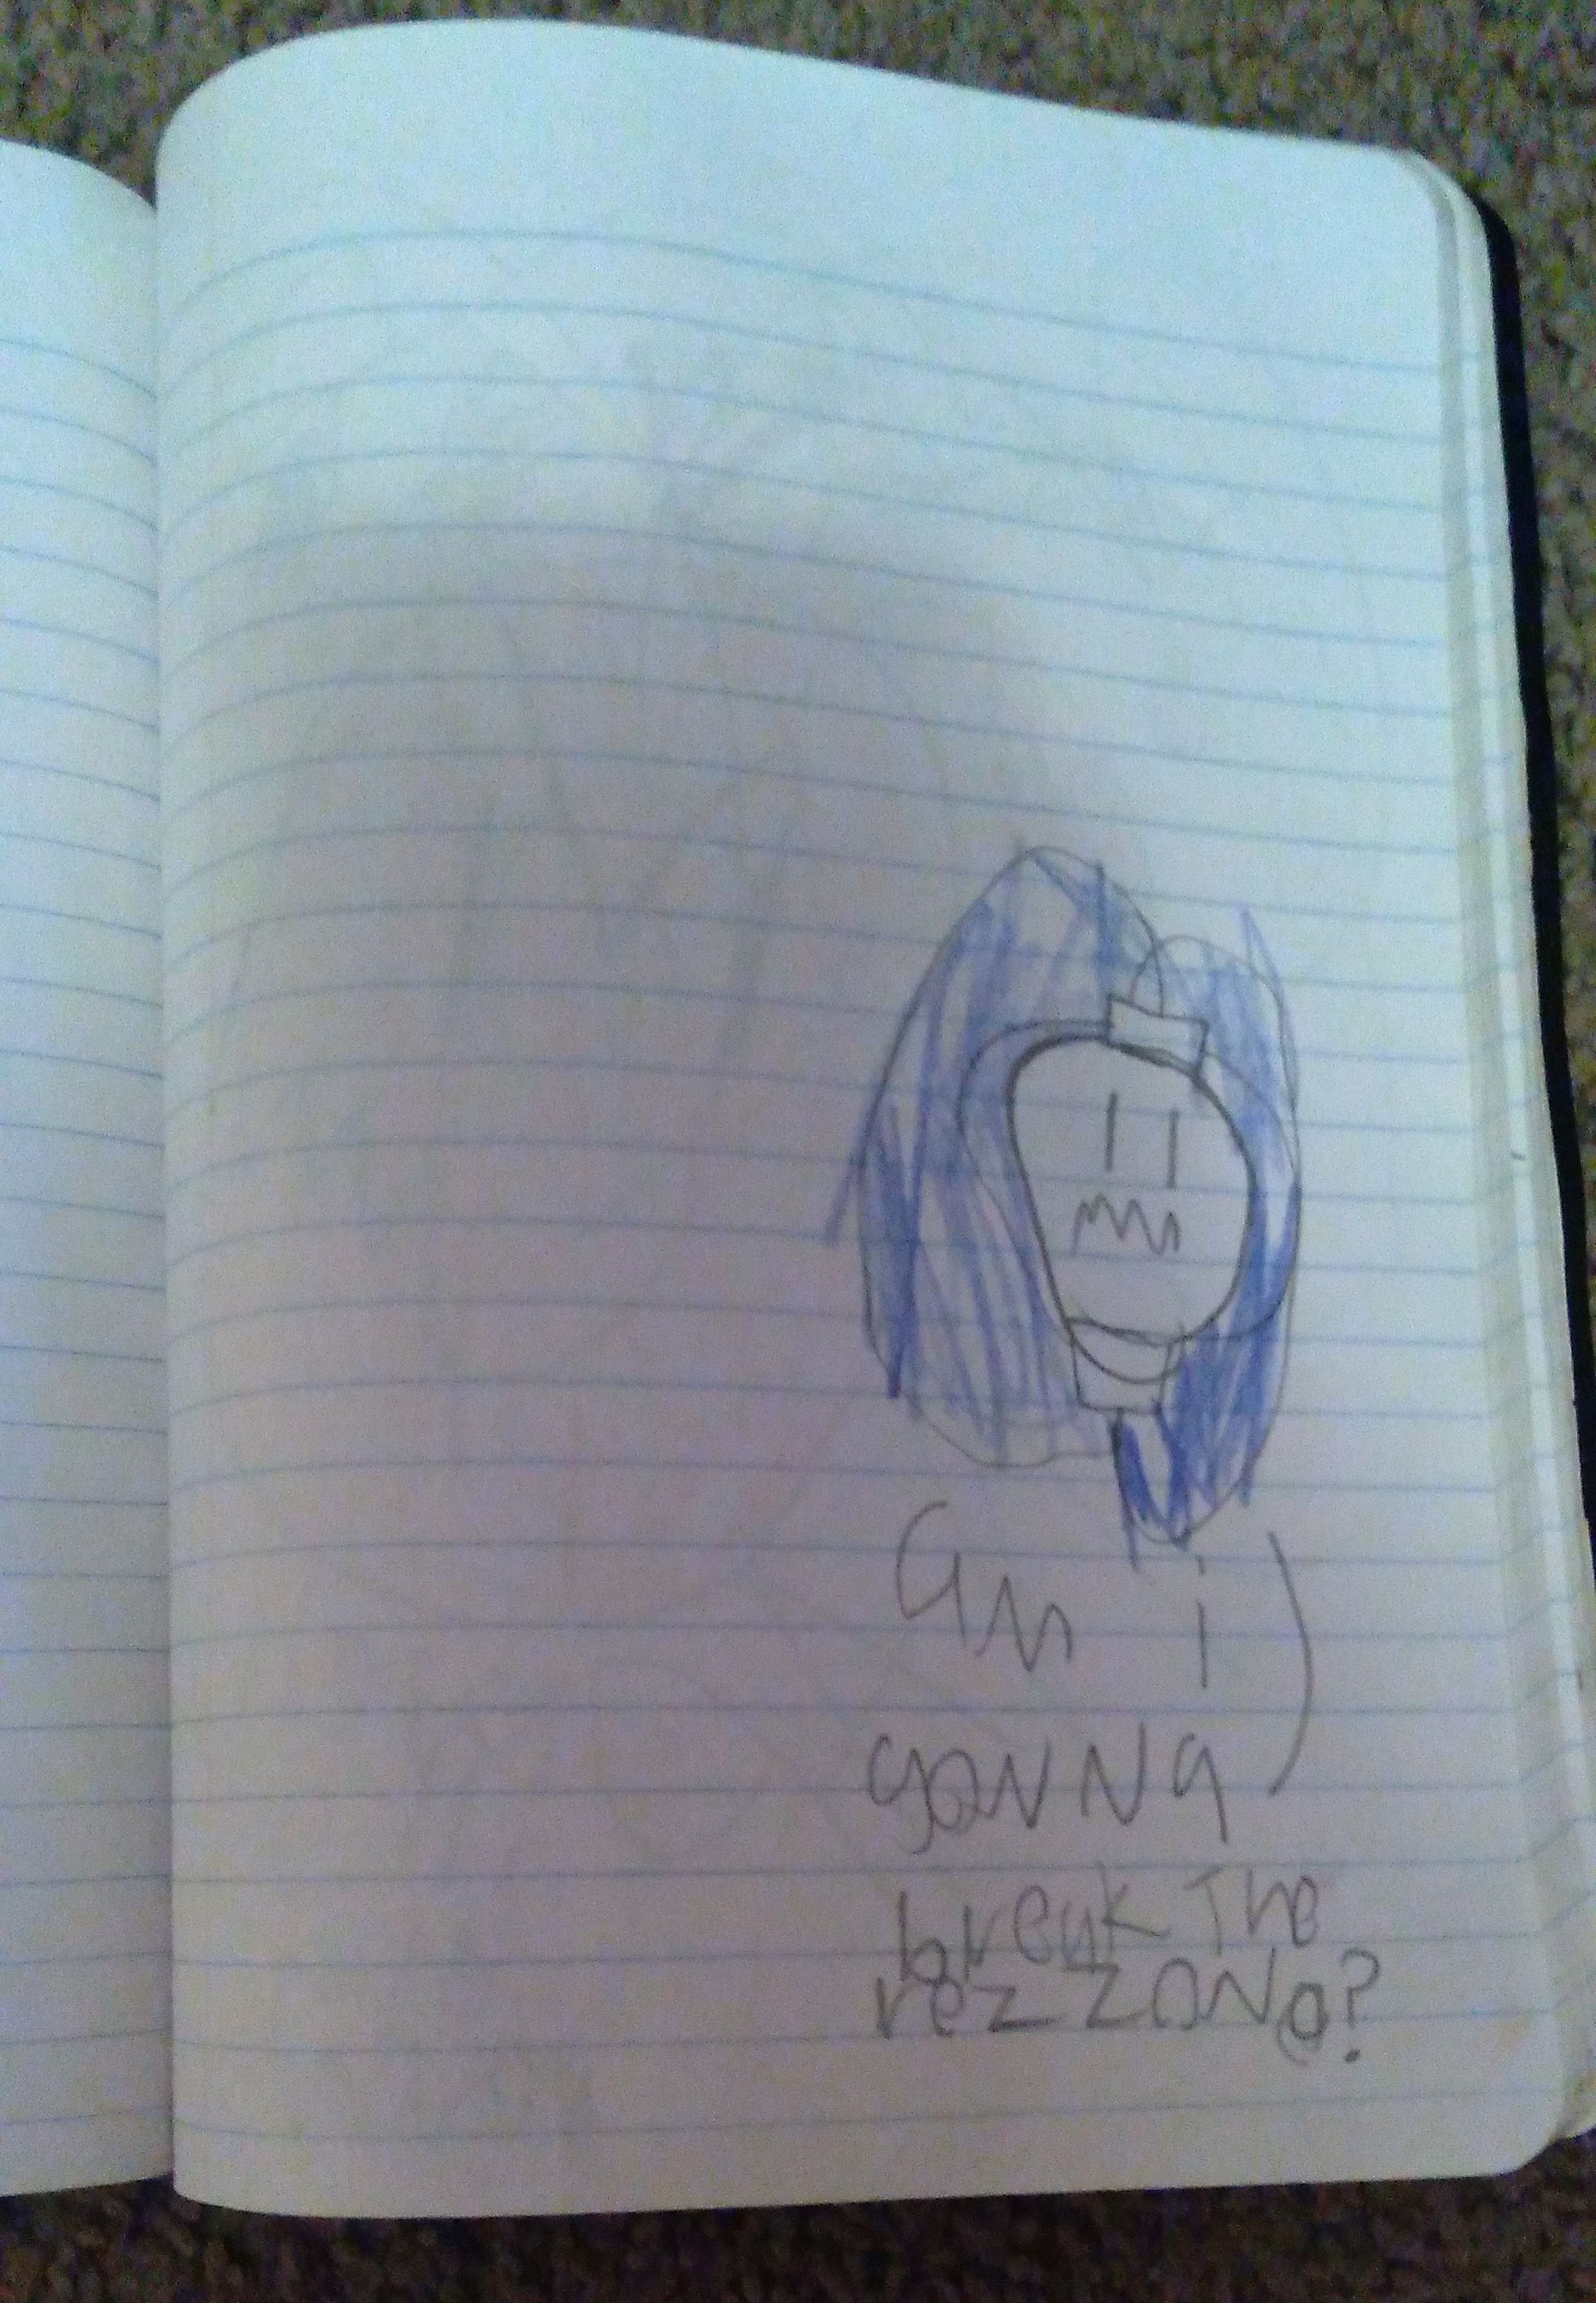 am i
gonna
break The
rez zone?